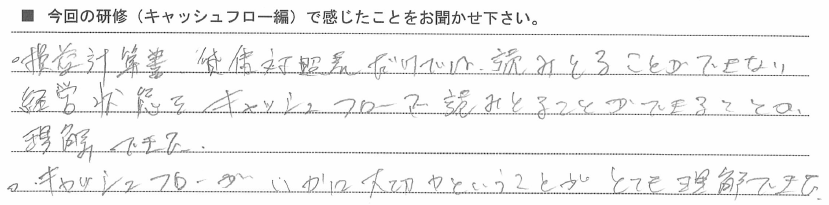 ■ 今回の研修（キャッシュフロー編）で感じたことをお聞かせ下さい。
○損益計算書 貸借対照表だけでは、読みとることができない
経営状態をキャッシュフローで読みとることができることが、
理解できた。
○キャッシュフローがいかに大切かということがとても理解できた